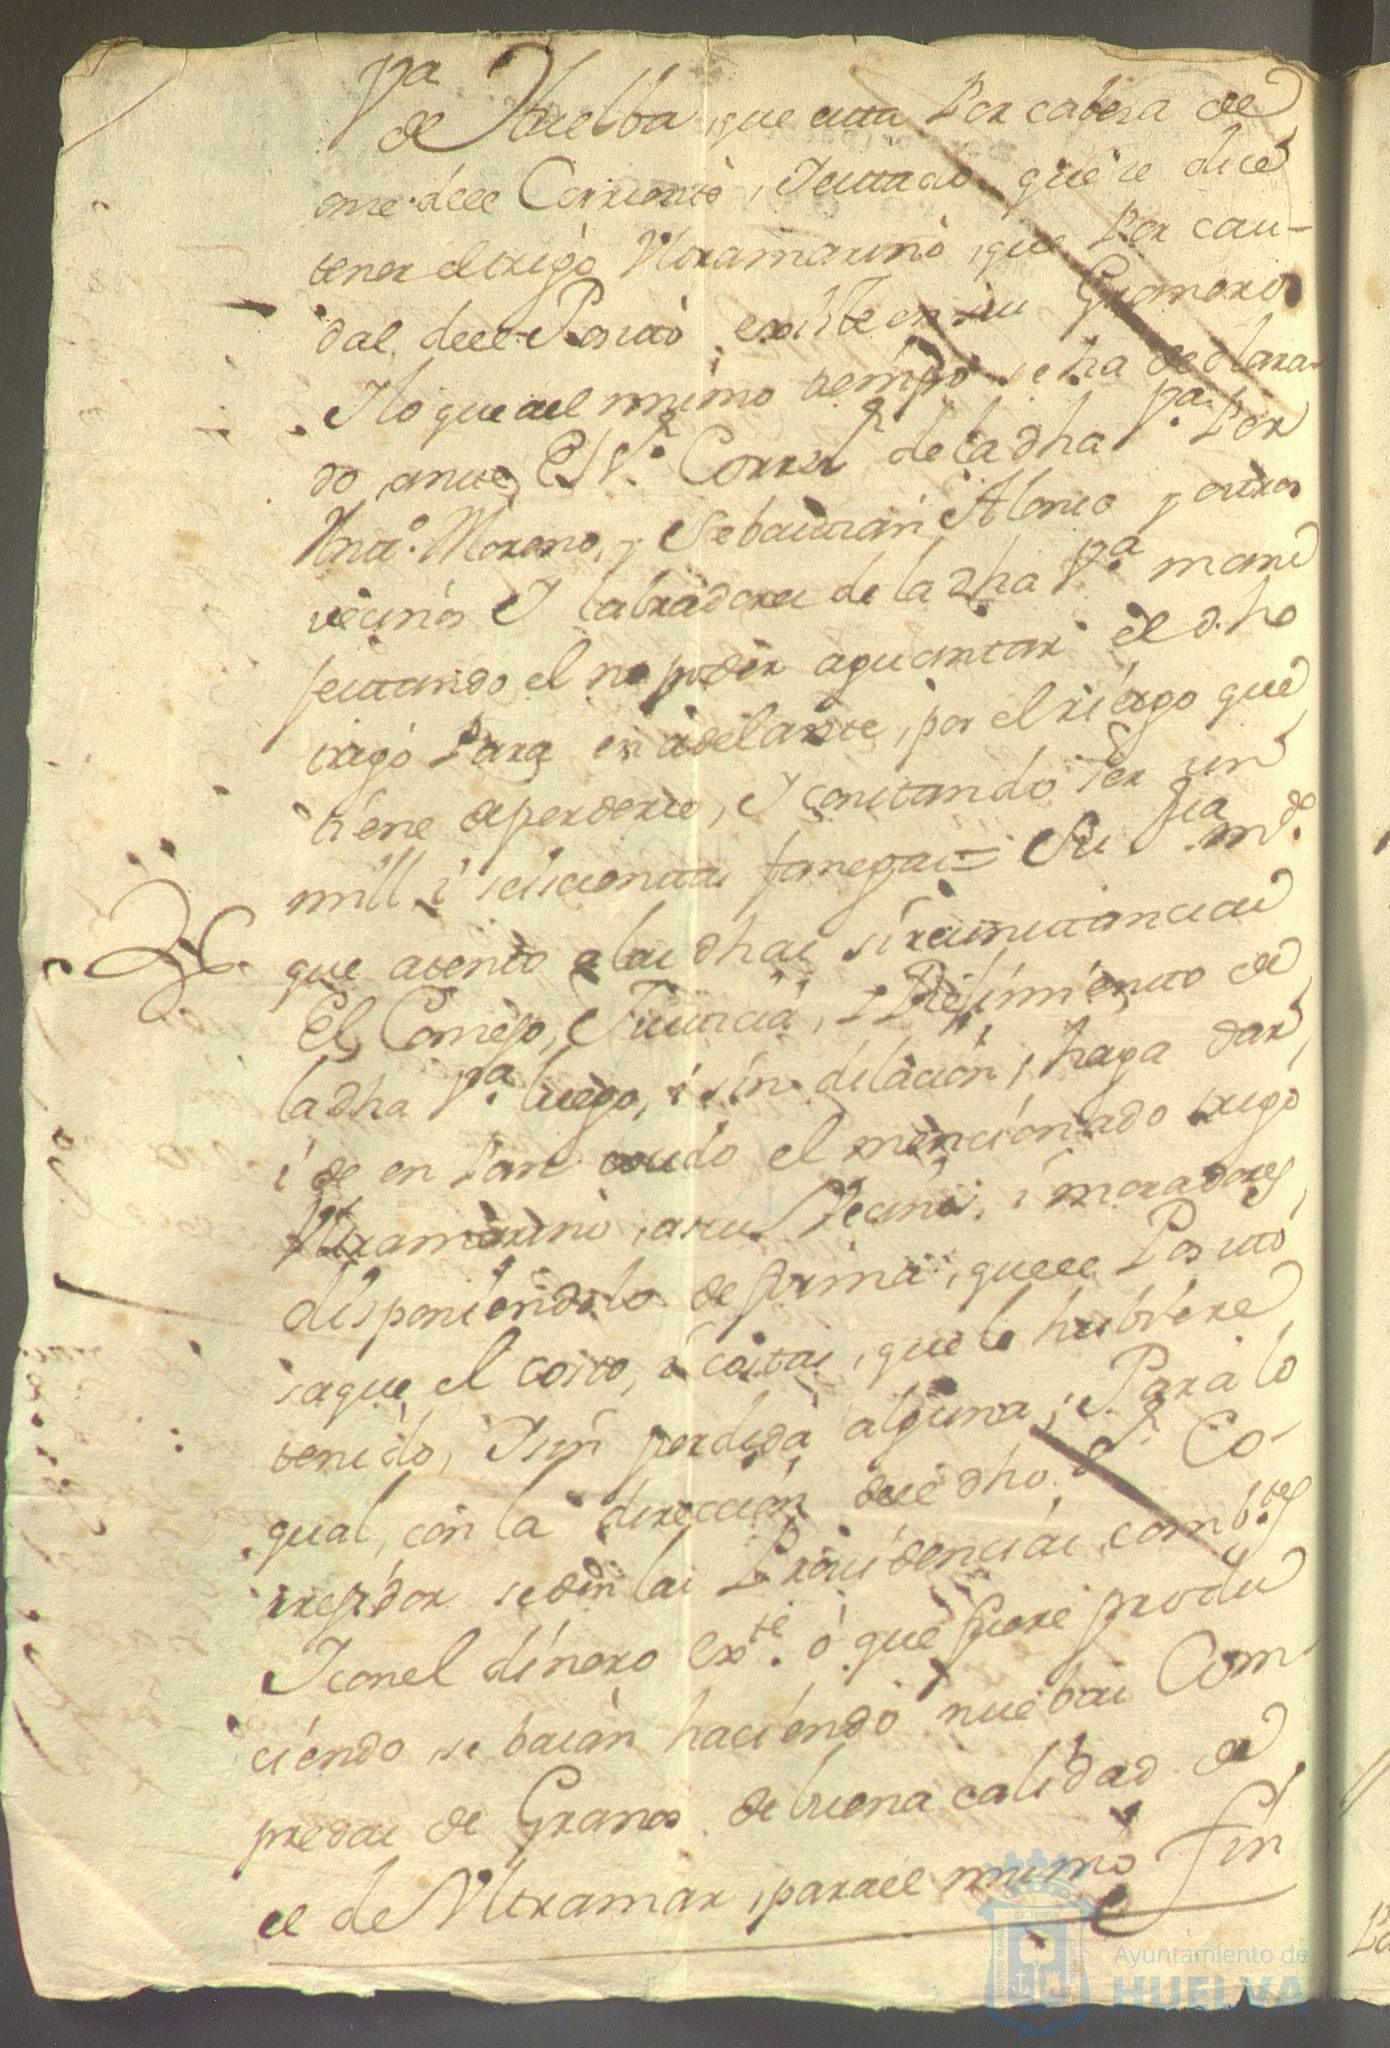 Vª
de Huelba, que esta Por cabesa de
este dell Corriente, I estado que se dice
tener el trigo Vltramarino, que Por cau-
dal dell Posito existe en su Granero
I lo que al mismo tiempo se ha declara-
do ante, El Sr. Correxr de la dha Vª. Por
Anto. Moreno, y Sebastian Alonso y otros
vecinos I labradores de la dha Vª. mani
festando el no poder aguantar el dho
trigo Para en adelante, por el riesgo que
tiene de perderse, I constando ser un
mill i seiscientas fanegas = Su Sria mdo.
que atento a las dhas sircunstancias
El Consejo, Justicia, i Rejimiento de
la dha Vª. luego, i sin dilacion, haga dar,
i de en Pan cosido el mencionado trigo
Vltramarino, a sus Vecinos, i moradores
disponiendolo de forma, que el Posito
saque el costo, i costas, que le hubiere
tenido, I sin perdida alguna; Para lo
qual, con la direccion dell dho Sr. Co-
rrejidor se den las Providencias combtes
I con el dinero exte. ó que fuere produ
ciendo se baian haciendo nuebas Com-
predas de Granos de buena calidad de
el de Vltramar, para el mismo fin
Ayuntamiento de
HUELVA